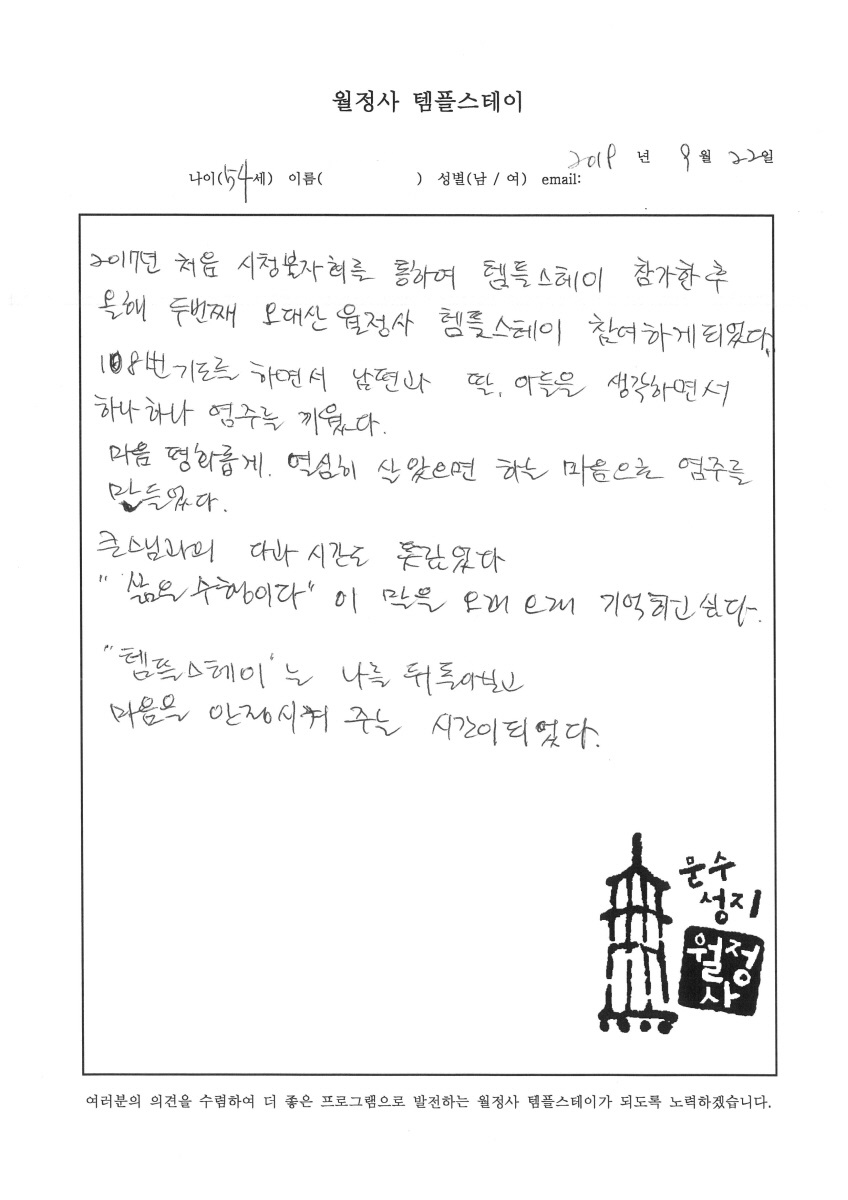 월정사 템플스테이
2018 년 9 월 22일
나이(54세) 이름( ) 성별(남 / 여) email:
2017년 처음 시청불자회를 통하여 템플스테이 참가한 후
올해 두번째 오대산 월정사 템플스테이 참여하게 되었다.
108번 기도를 하면서 남편과 딸, 아들을 생각하면서
하나하나 염주를 끼웠다.
마음 평화롭게. 열심히 살았으면 하는 마음으로 염주를
만들었다.
큰스님과의 다과 시간도 뜻깊었다
"삶은 수행이다" 이 말을 오래 오래 기억하고 싶다.
"템플스테이'는 나를 뒤돌아보고
마음을 안정시켜 주는 시간이 되었다.
문수
성지
월정
사
여러분의 의견을 수렴하여 더 좋은 프로그램으로 발전하는 월정사 템플스테이가 되도록 노력하겠습니다.